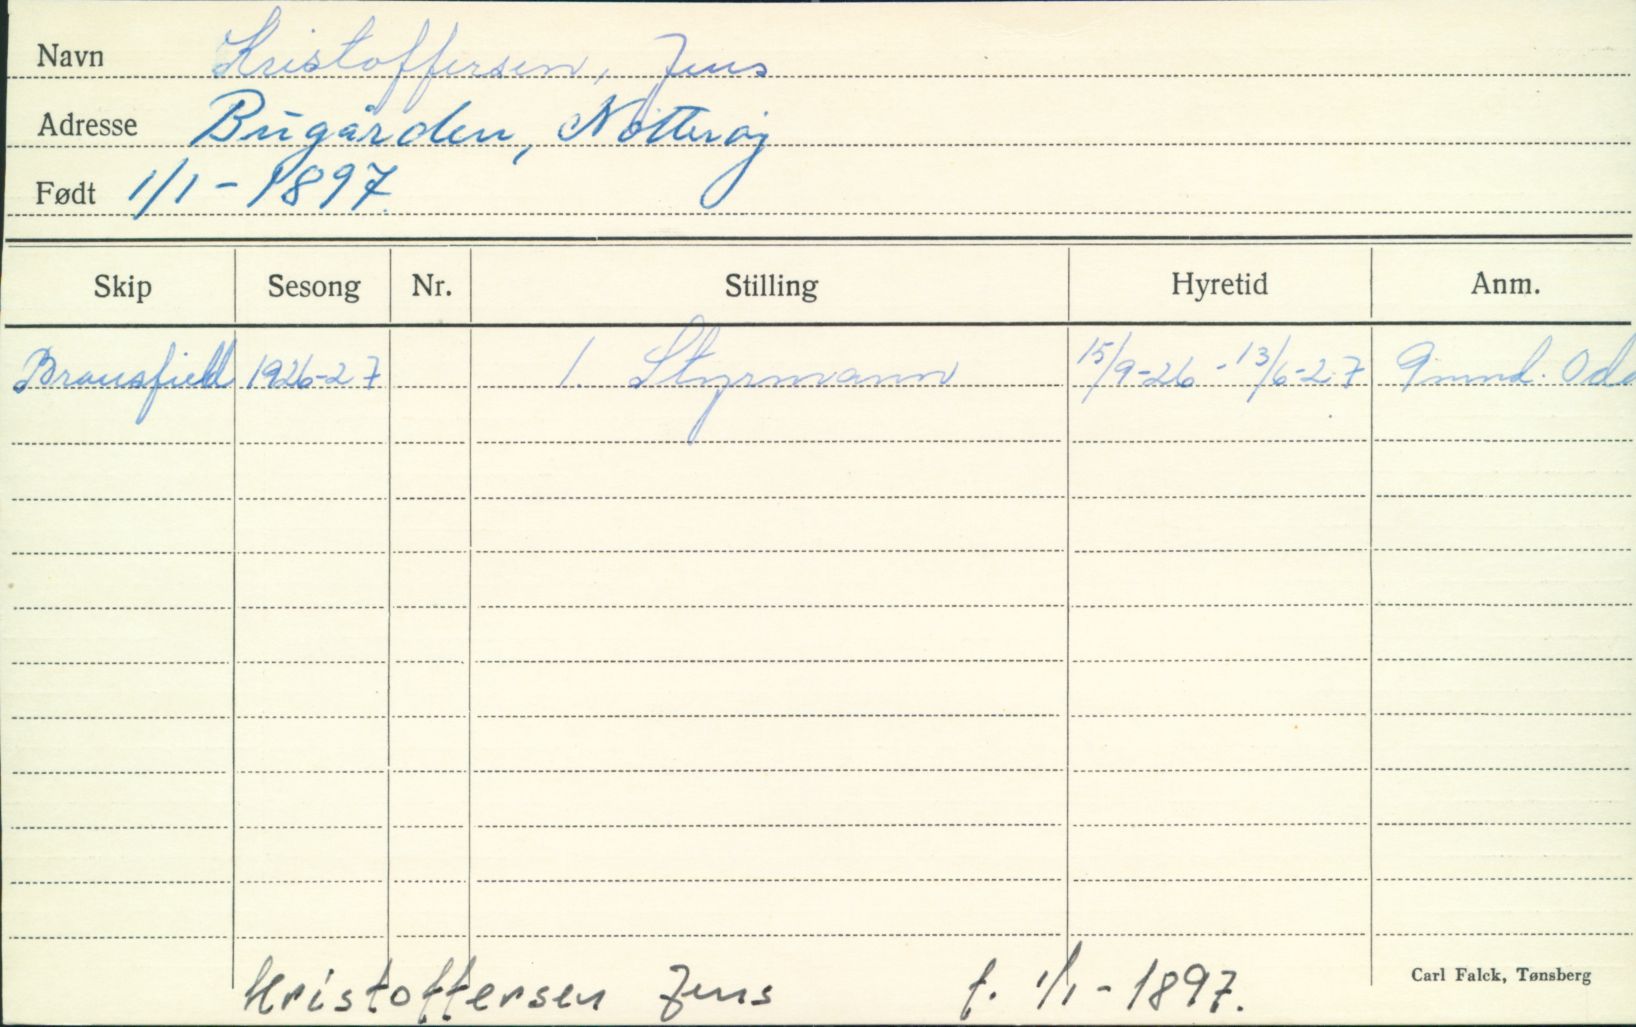 Navn Kristoffersen, Jens
Adresse Bugården, Nøtterøy
Født 1/1 - 1897.
Skip Sesong Nr. Stilling Hyretid Anm.
Bransfield 1926-27 1. Styrmann 15/9-26 - 13/6-27 Odd
Kristoffersen Jens f. 1/1 - 1897.
Carl Falck, Tønsberg